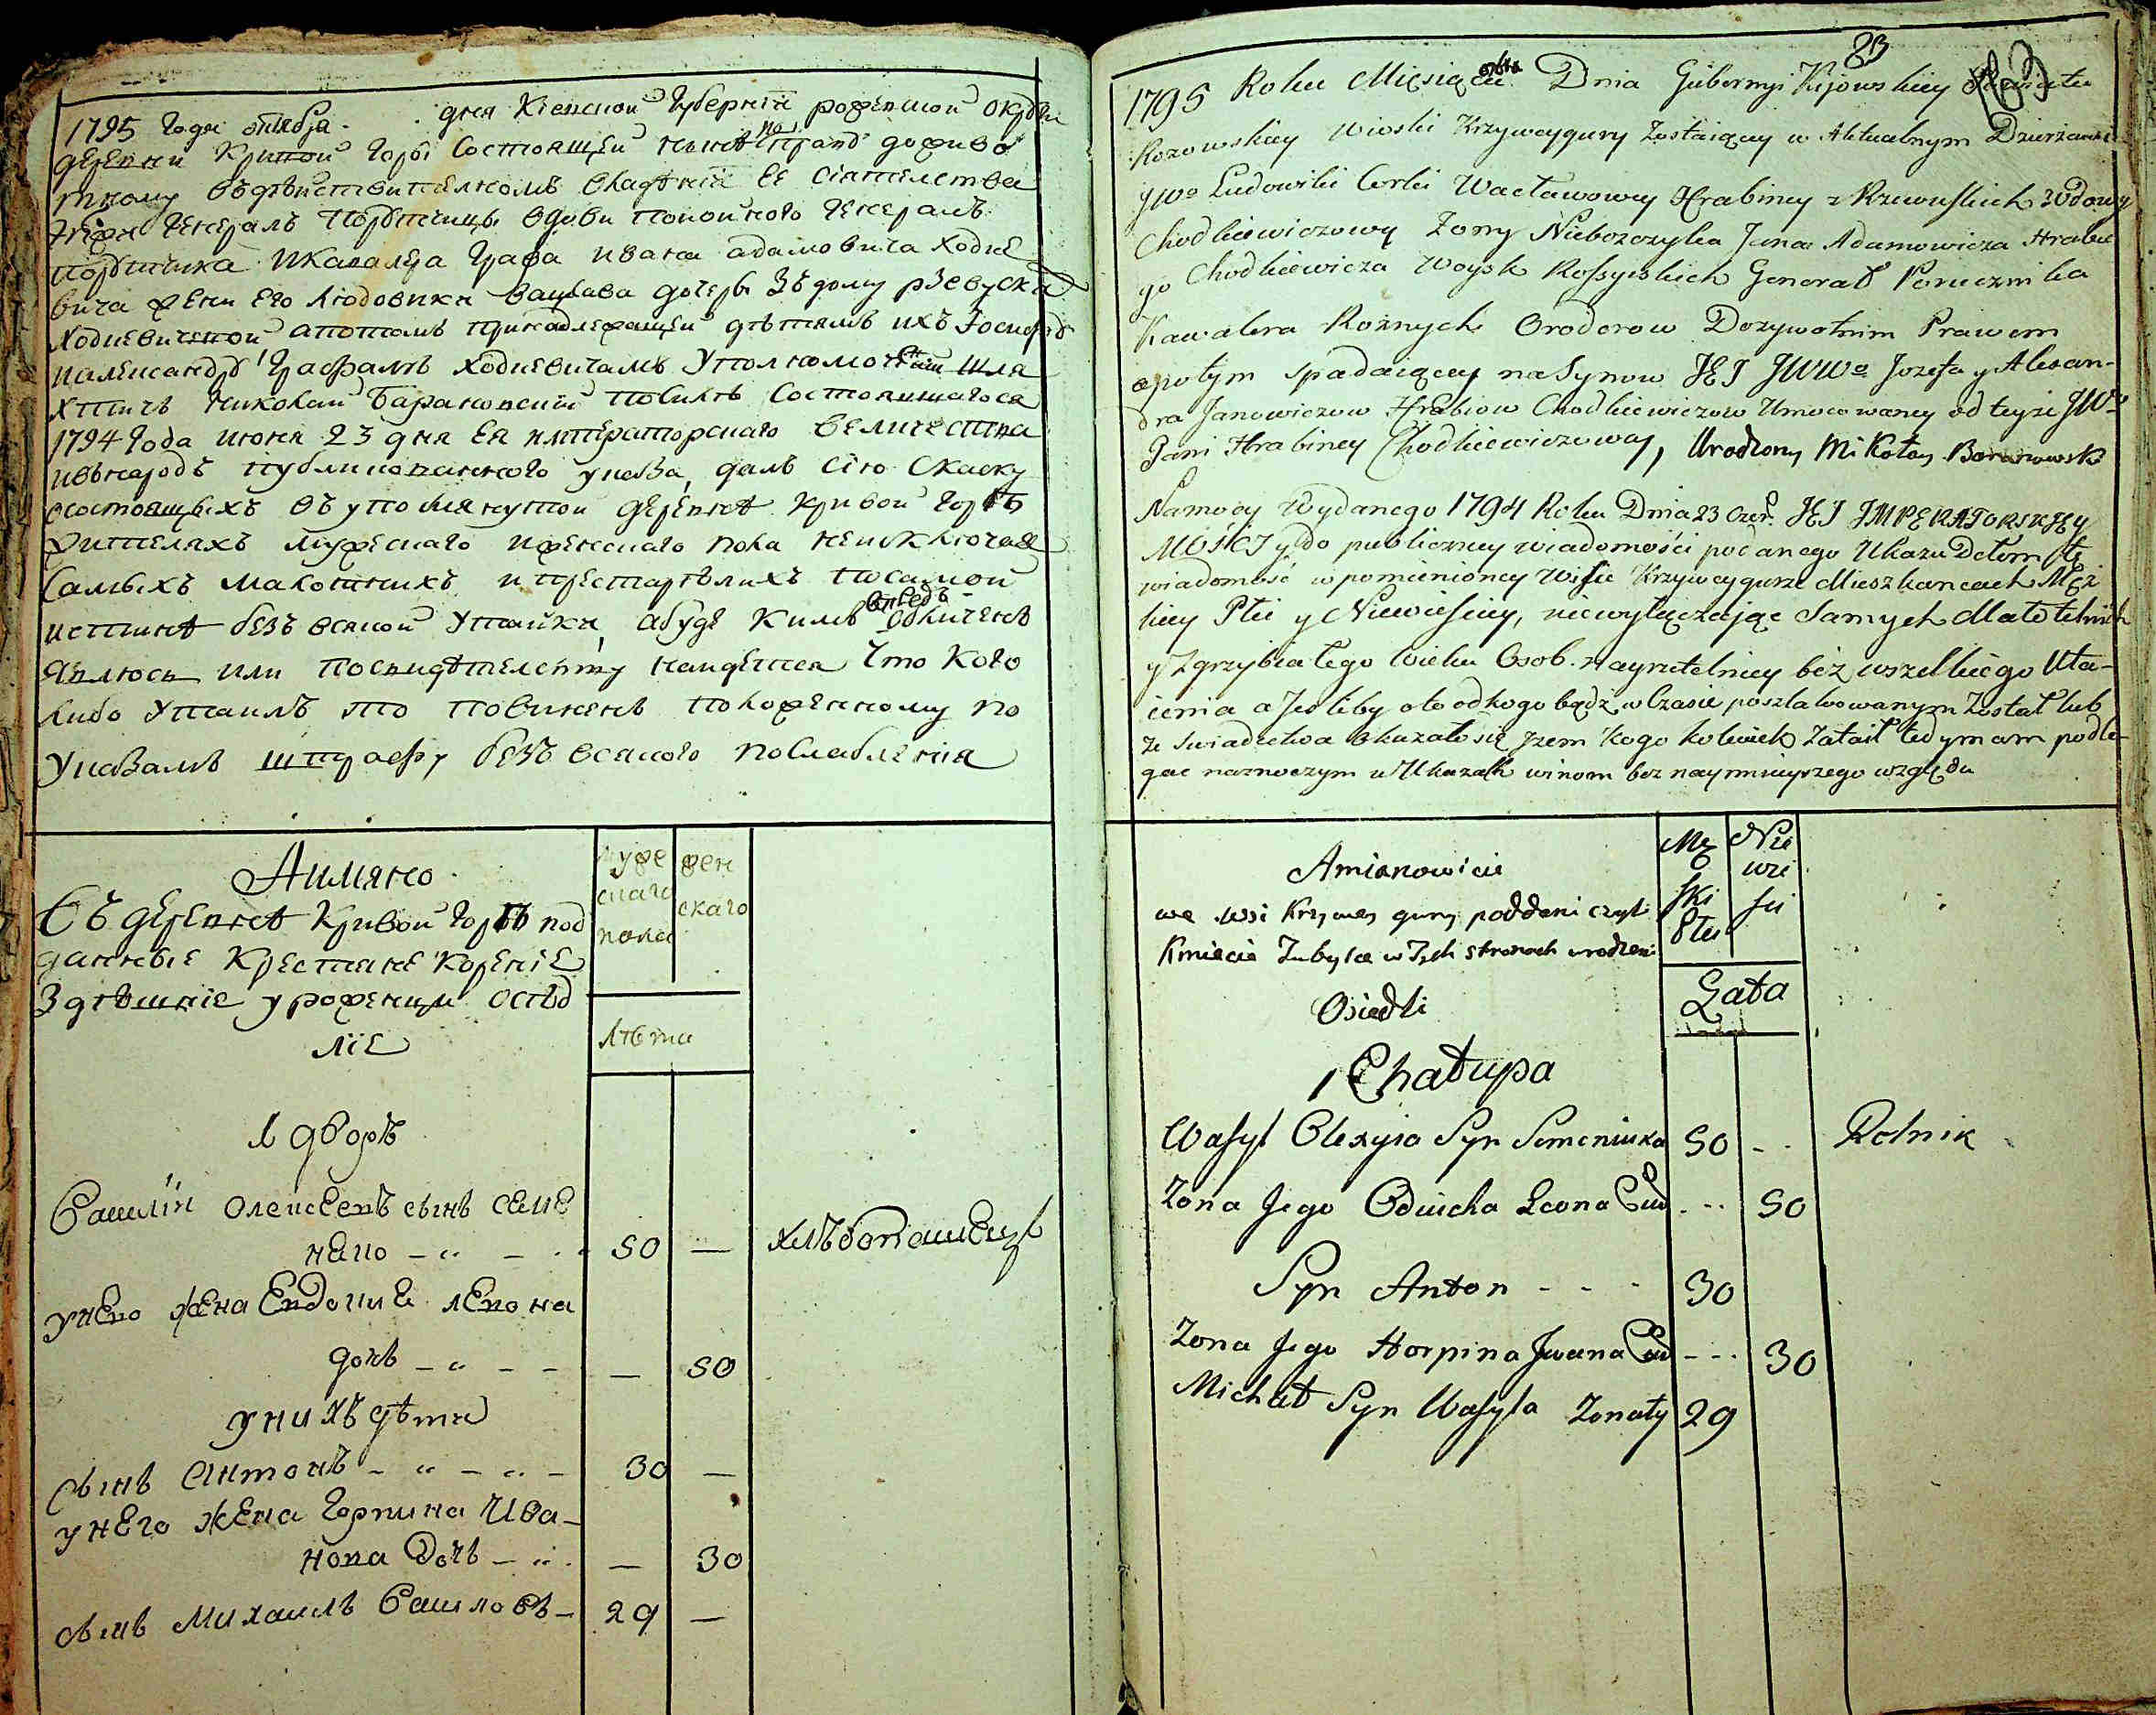 1795 года октября дня Киевской Губернии рожевской округи
деревни Кривой Горы Состоящей ныне по праву доживо
тному въ действителномъ владении Ее Сиятелства
Генералъ Порутчицы вдови покойного Генералъ
порутчика и кавалера Графа Ивана адамовича Ходке
вича жени его Людовики вацлава дочеры зъ дому рзевуска
Ходкевичевой а потомъ принадлежащей детямъ ихъ Иосифу
и александру Графамъ ходкевичамъ Уполномоченний шля
хтичъ Николай Барановский по силе Состоявшагося
1794 года июня 23 дня Ея императорскаго величества
и въ народъ публикованного указа, далъ сию Скаску
о состоящыхъ въ упомянутой деревне Кривой горѣ
жителяхъ мужескаго и женскаго пола неисключая
Самыхъ малолтнихъ и престарелихъ по самой
истине безъ всякой Утайки, а буде кимъ впредь обличенъ
явлюсь или по свидетелству найдется что кого
либо Утаилъ то повиненъ положенному по
Указамъ штрафу безъ всякого послабления
А имянно
Въ деревне Кривой Горѣ под
данные Крестяне Корение
Здешние уроженци осѣд
лiе
муже
скаго
пола
жен
скаго
лѣта
1 дворъ
Василiй Олексеевъ сынъ Семе
нюко 50 —
хлѣбопашецъ
у нево жена Евдокия левона
дочь — 50
у нихъ дѣти
сынъ Антонъ 30 —
у него жена Горпина Ива-
нова дочь — 30
сынъ Михаилъ Василовъ 29 —
83
1795 Roku Miesiąca 8bra Dnia Gubernyi Kijowskiey Powiatu
Rozowskiey Wioski Krzyweygury Zostaiącey w Aktualnym Dzierżawie
JWo Ludowiki Corki Wacławowey Hrabiney z Rzewuskich Wdowy
Chodkiewiczowy Zony Nieboszczyka Jana Adamowicza Hrabie
go Chodkiewicza Woysk Rossyiskich Generał Porucznika
Kawalera Roznych Orderow Dozywotnim Prawem
a potym spadaiącey na Synow JEJ JWWo Jozefa y Alexan-
dra Janowiczow Hrabiow Chodkiewiczow Umocowaney od teyże JWo
Pani Hrabiney Chodkiewiczowey, Urodzony Mikołay Baranowsk
Namocy Wydanego 1794 Roku Dnia 23 Czer. JEJ IMPERATORSKIEY
MOŚCI y do publiczney wiadomości podanego Ukazu Dałem tę
wiadomość w pomienioney Wsie Krzyweygurze Mieszkancach Męz
kiey Płci y Niewieściey, niewyłączając Samych Małoletnich
y Zgrzybiałego Wieku Osob. nayrzetelniey beż wszelkiego Uta-
ienia a Jesliby oto od kogo bądz w Czasie poszlakowanym Został lub
ze świadectwa okazało się żem kogo kolwiek Zataił tedy mam podle-
gac naznaczym w Ukazach winom bez naymnieyszego względu
Amianowicie
we wsi Krzywey gury poddani czyli
Kmiecie Zubyłce w Tych stronach urodzeni
Osiedli
Mę
ski
Płci
Nie
wie
sci
Lata
1 Chałupa
Wasyl Olexyia Syn Semeniuka 50
Rolnik
Zona Jego Odwicha Leona Cur 50
Syn Anton 30
Zona Jego Horpina Jwana Cur 30
Michał Syn Wasyla Zonaty 29